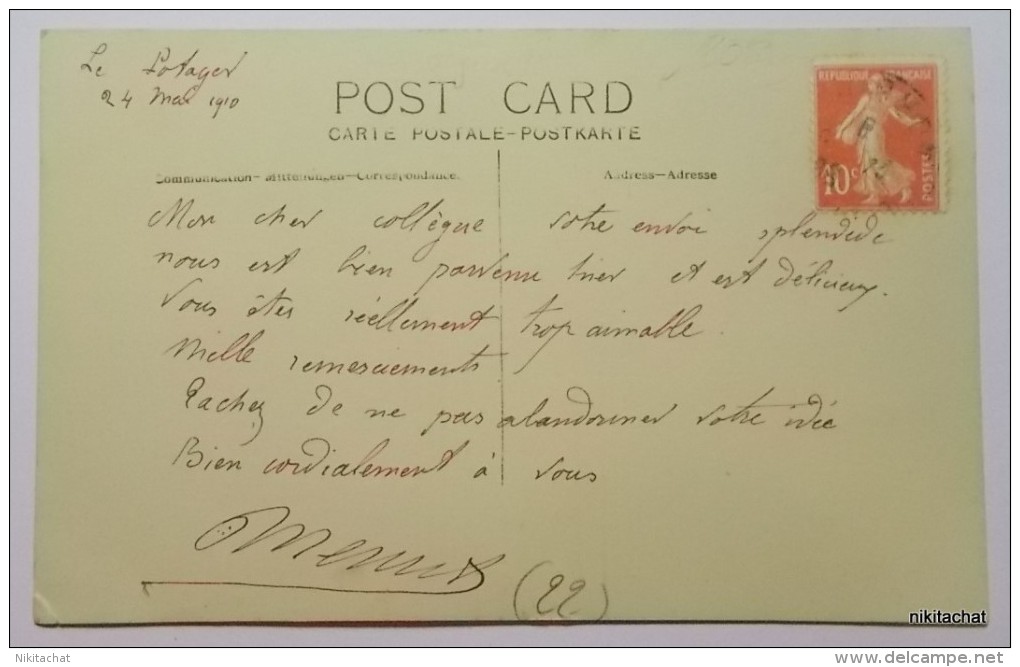 Le Potager
24 Mai 1910
POST CARD
CARTE POSTALE-POSTKARTE
Communication-Mitteilungen-Correspondance.
Address-Adresse
REPUBLIQUE FRANÇAISE
10c
POSTES
Mon cher collègue votre envoi splendide
nous est bien parvenu hier et est délicieux.
Vous êtes réellement trop aimable.
Mille remerciements
Tachez de ne pas abandonner votre idée
Bien cordialement à vous
(22)
nikitachat
Nikitachat
www.delcampe.net